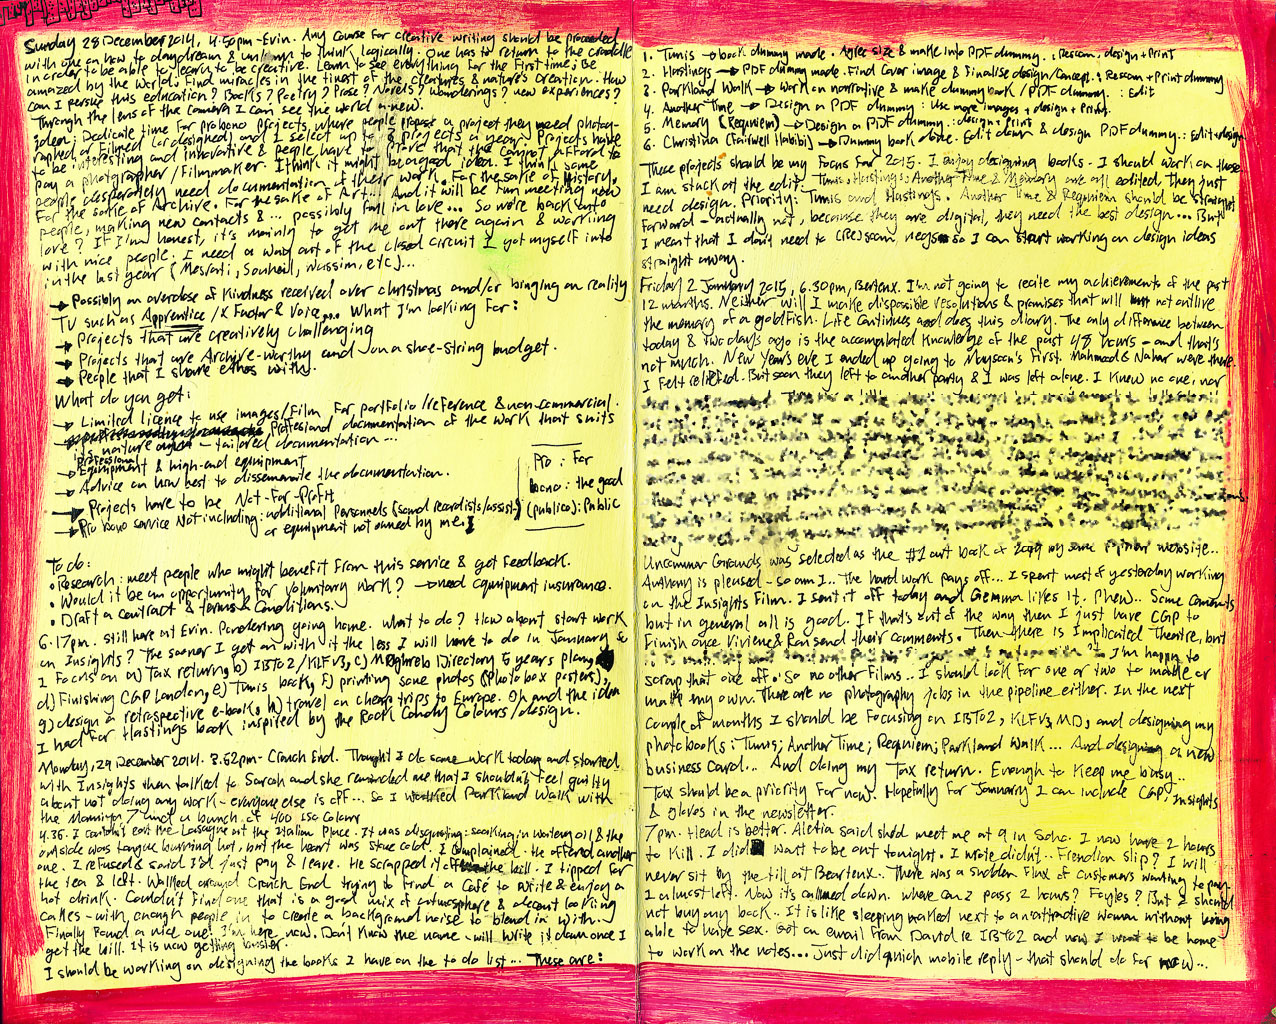 Sunday 28 December 2014, 4:50pm - Evin. Any course for creative writing should be proceeded
with one on how to daydream & unlearn to think logically. One has to return to the craddle
in order to be able to learn to be creative. Learn to see everything for the first time; Be
amazed by the world. Find miracles in the tiniest of the creatures & nature's creation. How
can I persue this education? Books? Poetry? Prose? Novels? Wanderings? new experiences?
Through the lens of the camera I can see the world a new.
Idea: Dedicate time for probono projects, where people propose a project they need photog-
raphed or filmed (or designed) and I select up to 3 projects a year. Projects have
to be interesting and innovative & people have to prove that they cannot afford to
pay a photographer/filmmaker. I think it might be a good idea. I think some
people desperately need documentation of their work. For the sake of History,
For the sake of Archive. For the sake of Art. And it will be fun meeting new
people, making new contacts & ... possibly fall in love... So we're back into
love? If I'm honest, it's mainly to get me out there again & working
with nice people. I need a way out of the closed circuit I got myself into
in the last year (Mesrati, Souheil, Wassim, etc)...
→ Possibly an overdose of kindness received over christmas and/or binging on reality
TV such as Apprentice / X Factor & Voice... What I'm looking for:
→ Projects that are creatively challenging
→ Projects that are Archive-worthy and on a shoe-string budget.
→ People that I share ethos with.
What do you get:
→ Limited licence to use images/film for portfolio/reference & non-commercial.
→ Professional documentation of the work that suits
its nature - tailored documentation...
→ Professional Equipment & high-end equipment
→ Advice on how best to disseminate the documentation.
→ Projects have to be Not-For-Profit
→ Pro bono service Not including: additional personnels (sound recordists/assist.)
or equipment not owned by me.
Pro: For
bono: the good
(publico): Public
To do:
• Research: meet people who might benefit from this service & get feedback.
• Would it be an opportunity for voluntary work? → need equipment insurance.
• Draft a contract & terms & conditions.
6.17pm. still here at Evin. Pondering going home. what to do? How about start work
on Insights? The sooner I got on with it the less I will have to do in January so
I focus on a) Tax return, b) IBTO2/KLFV3, c) Maghreb Directory 5 years plan,
d) Finishing CGP London, e) Tunis book, f) printing some photos (Photobox posters),
g) design a retrospective e-book, h) travel on cheap trips to Europe. Oh and the idea
I had for Hastings book inspired by the Rock Candy Colours/design.
Monday, 29 December 2014. 3.52pm - Crouch End. Thought I do some work today and started
with Insights then talked to Sarah and she reminded me that I shouldn't feel guilty
about not doing any work - everyone else is off... So I walked Parkland Walk with
the Mamiya 7 and a bunch of 400 ISO Colour
4.35. I couldn't eat the Lasagne at the Italian Place. It was disgusting: soaking in watery oil & the
outside was tongue burning hot, but the heart was stone cold. I complained. He offered another
one. I refused & said I'd just pay & leave. He scrapped it off the bill. I tipped for
the tea & left. Walked around Crouch End trying to find a Café to write & enjoy a
hot drink. Couldn't find one that is a good mix of atmosphere & decent looking
cakes - with enough people in to create a background noise to blend in with.
Finally found a nice one. I'm here now. Don't know the name - will write it down once I
get the bill. It is now getting busier.
I should be working on designing the books I have on the to do list... These are:
1. Tunis → book dummy made. Agree size & make into PDF dummy. : Rescan, design + Print
2. Hastings → PDF dummy made. Find cover image & Finalise design/concept. : Rescan + Print dummy
3. Parkland Walk → Work on narrative & make dummy book / PDF dummy. : Edit
4. Another Time → Design a PDF dummy: Use more images + design + Print.
5. Memory (Requiem) → Design a PDF dummy: design + Print
6. Christina (Farewell Habibi) → Dummy book done. Edit down & design PDF dummy: Edit + design
These projects should be my focus for 2015. I enjoy designing books. I should work on those
I am stuck at the edit. Tunis, Hastings, Another Time & Memory are all edited. They just
need design. Priority: Tunis and Hastings. Another Time & Requiem should be straight
forward - actually not, because they are digital, they need the best design... But
I meant that I don't need to (re)scan negs so I can start working on design ideas
straight away.
Friday 2 January 2015, 6.30pm, Beartenx. I'm not going to recite my achievements of the past
12 months. Neither will I make disposible resolutions & promises that will not outlive
the memory of a goldfish. Life continues and does this diary. The only difference between
today & two days ago is the accumulated knowledge of the past 48 hours - and that's
not much. New Years eve I ended up going to Maysoon's first. Mahmood & Nahar were there.
I felt relieved. But soon they left to another party & I was left alone. I knew no one, nor
Uncommon Grounds was selected as the #1 art book of 2014 my some opinion website...
Anthony is pleased - so am I.. The hard work pays off... I spent most of yesterday working
on the Insights Film. I sent it off today and Gemma likes it. Phew.. Some comments
but in general all is good. If that's out of the way then I just have CGP to
finish once Viviene & Ron send their comments. Then there is Implicated Theatre, but
I'm happy to
scrap that one off. So no other films.. I should look for one or two to make or
make my own. There are no photography jobs in the pipeline either. In the next
couple of months I should be focusing on IBTO2, KLFV3, MD, and designing my
photobooks: Tunis; Another Time; Requiem; Parkland Walk... And designing a new
business card... And doing my Tax return. Enough to keep me busy..
Tax should be a priority for now. Hopefully for January I can include CGP, Insights
& Gloves in the newsletter.
7pm. Head is better. Aletia said she'd meet me at 9 in Soho. I now have 2 hours
to kill. I did want to be out tonight. I wrote didn't.. Freudian slip? I will
never sit by the till at Beartenx.. There was a sudden flux of customers wanting to pay.
I almost left. Now it's calmed down. Where can I pass 2 hours? Foyles? But I should
not buy any book.. It is like sleeping naked next to an attractive woman without being
able to have sex. Got an email from David re IBTO2 and now I want to be home
to work on the notes... Just did quick mobile reply - that should do for now...